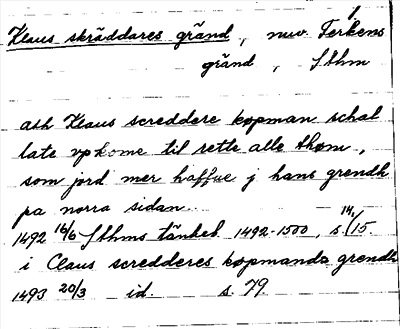 Klaus skräddares gränd, nuv. Ferkens
gränd, Sthm
ath Klaus screddere køpman schal
late vpkome til rette alle thøm,
som jord mer haffue j hans grendh
pa norra sidan.
1492 16/6 Sthms tänkeb. 1492-1500, s. 14/15.
i Claus scredderes køpmands grendh
1493 20/3 id. s. 79